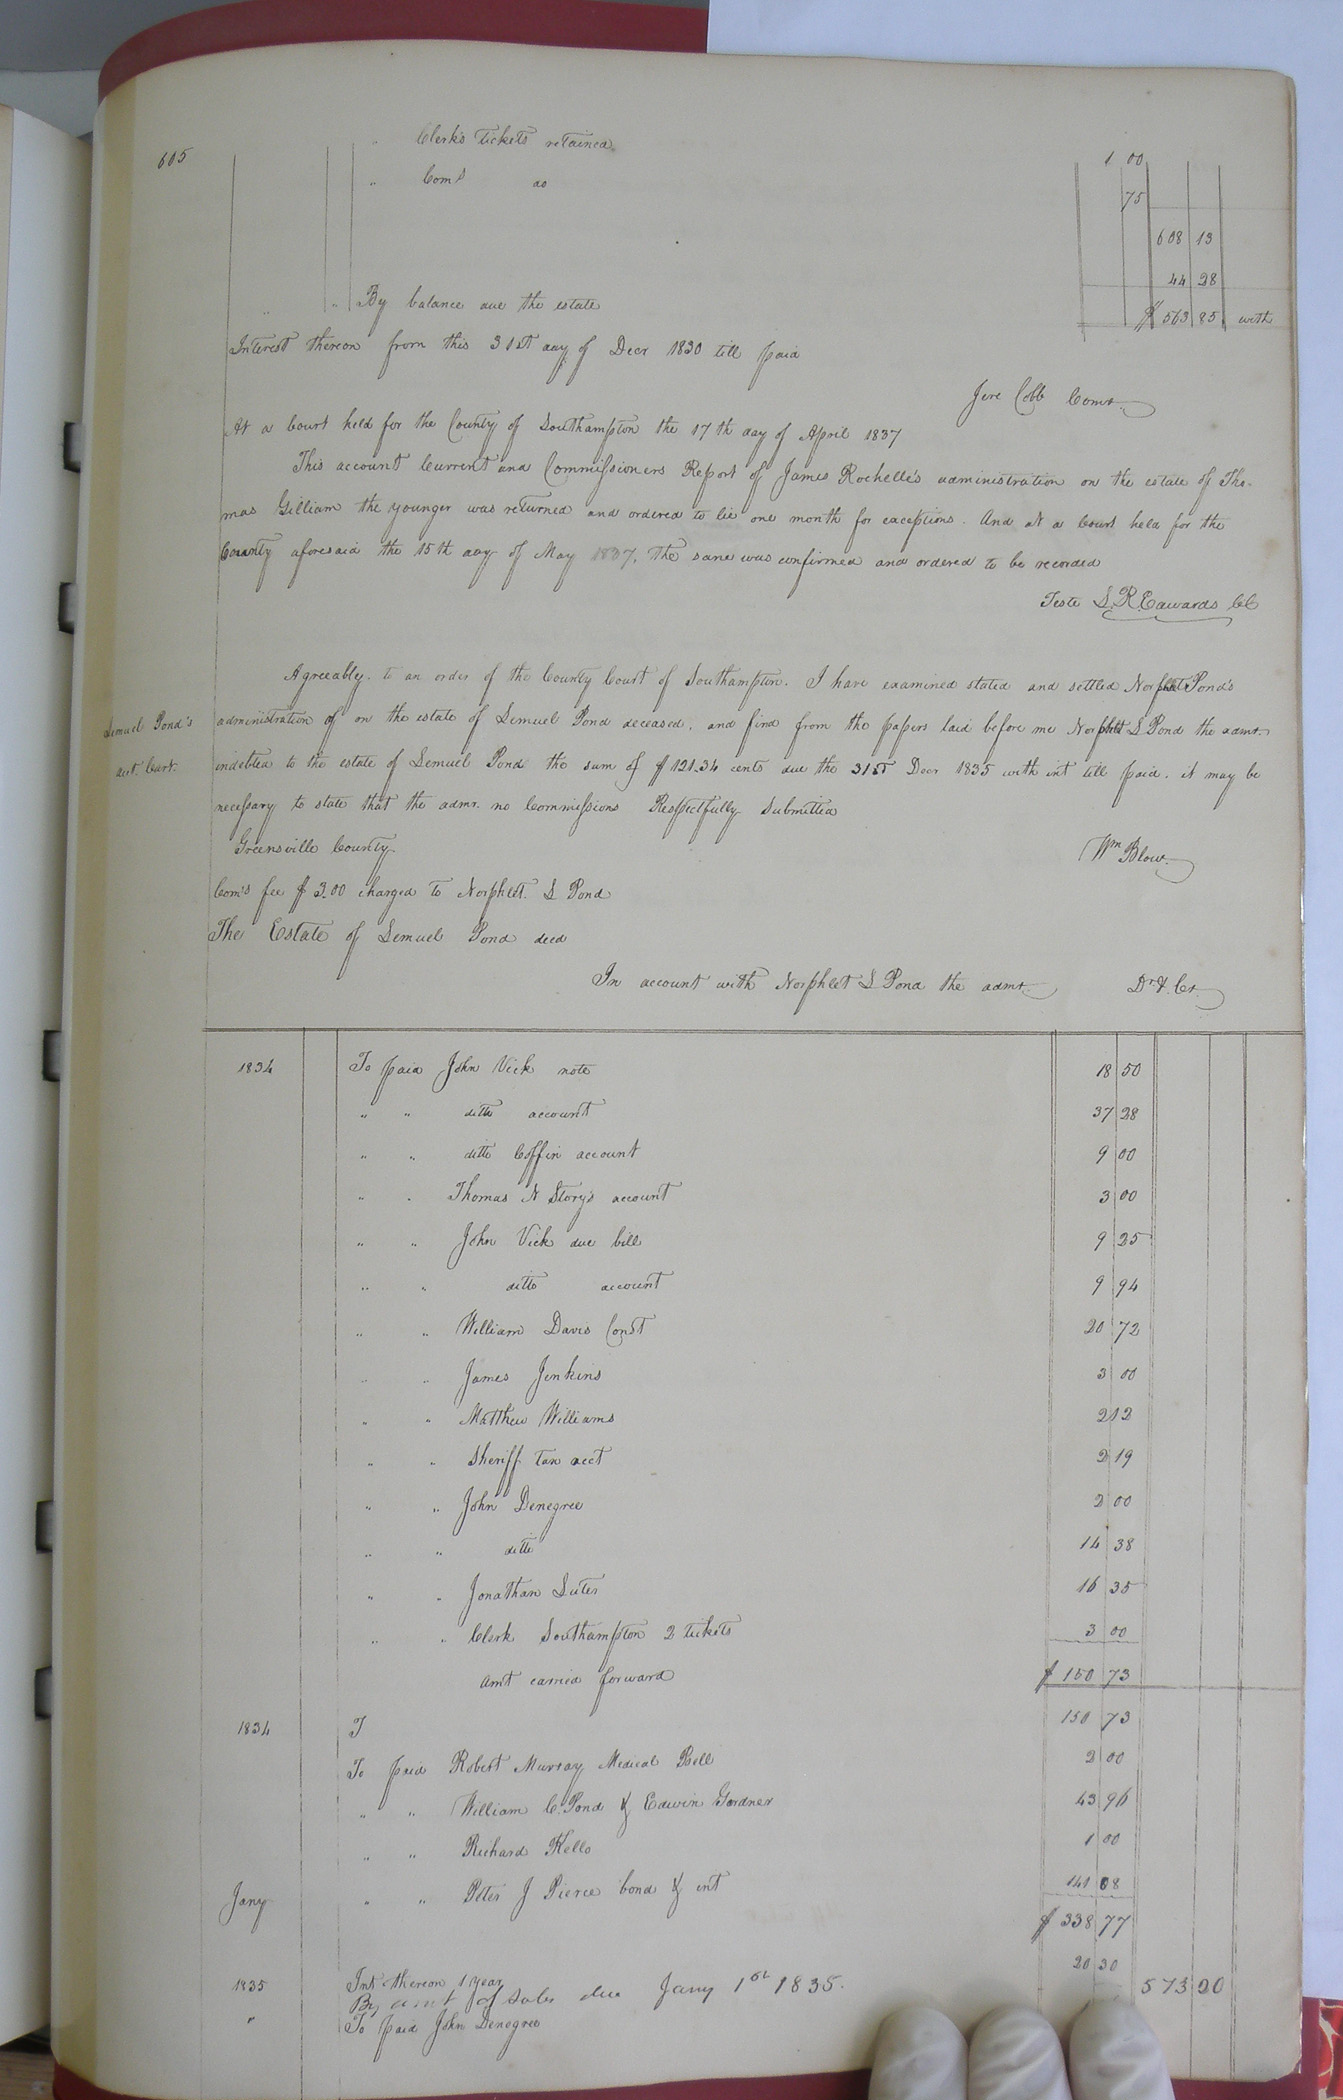 605
" Clerk's tickets retained 1 00
" Com's do 75
608 13
44 28
" " By balance due the estate $ 563 85 with
Interest thereon from this 31st day of Decr 1830 till paid
Jere Cobb Comr.
At a Court held for the County of Southampton the 17th day of April 1837
This account Current and Commissioners Report of James Rochelle's administration on the estate of Tho-
mas Gilliam the younger was returned and ordered to lie one month for exceptions. And at a Court held for the
County aforesaid the 15th day of May 1837, the same was confirmed and ordered to be recorded
Teste L. R. Edwards CC
Agreeably to an order of the County Court of Southampton. I have examined stated and settled Norphlet Pond's
Lemuel Pond's
administration of on the estate of Lemuel Pond deceased, and find from the papers laid before me Norphlet L Pond the admr.
act. Curt.
indebted to the estate of Lemuel Pond the sum of $121.34 cents due the 31st Decr 1835 with int till paid. it may be
necessary to state that the admr. no Commissions Respectfully Submitted
Greensville County. Wm Blow.
Com's fee $3.00 charged to Norphlet. L Pond
The Estate of Lemuel Pond decd
In account with Norphlet L Pond the admr. Dr. & Cr.
1834 To paid John Vick note 18 50
" " ditto account 37 28
" " ditto Coffin account 9 00
" " Thomas N Story's account 3 00
" " John Vick due bill 9 25
" " ditto account 9 94
" " William Davis Const 20 72
" " James Jenkins 3 00
" " Matthew Williams 2 12
" " Sheriff tax acct 2 19
" " John Denegree 2 00
" " ditto 14 38
" " Jonathan Lutes 16 35
" " Clerk Southampton 2 tickets 3 00
Amt carried forward $ 150 73
1834 T 150 73
To paid Robert Murray Medical Bill 2 00
" " William C. Pond & Edwin Gardner 43 96
" " Richard Kello 1 00
Jany " " Peter J Pierce bond & int 141 08
$ 338 77
1835 Int thereon 1 year 20 30
By amt of sales due Jany 1st 1835. 573 20
" To paid John Denegree